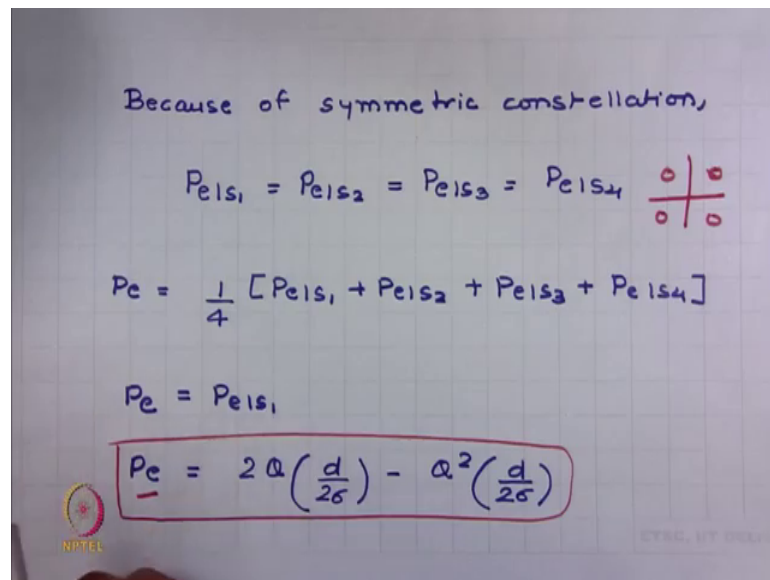 Because of symmetric constellation,
Pe|s₁ = Pe|s₂ = Pe|s₃ = Pe|s₄
Pe = 1/4 [Pe|s₁ + Pe|s₂ + Pe|s₃ + Pe|s₄]
Pe = Pe|s₁
Pe = 2Q(d/2σ) - Q²(d/2σ)
NPTEL